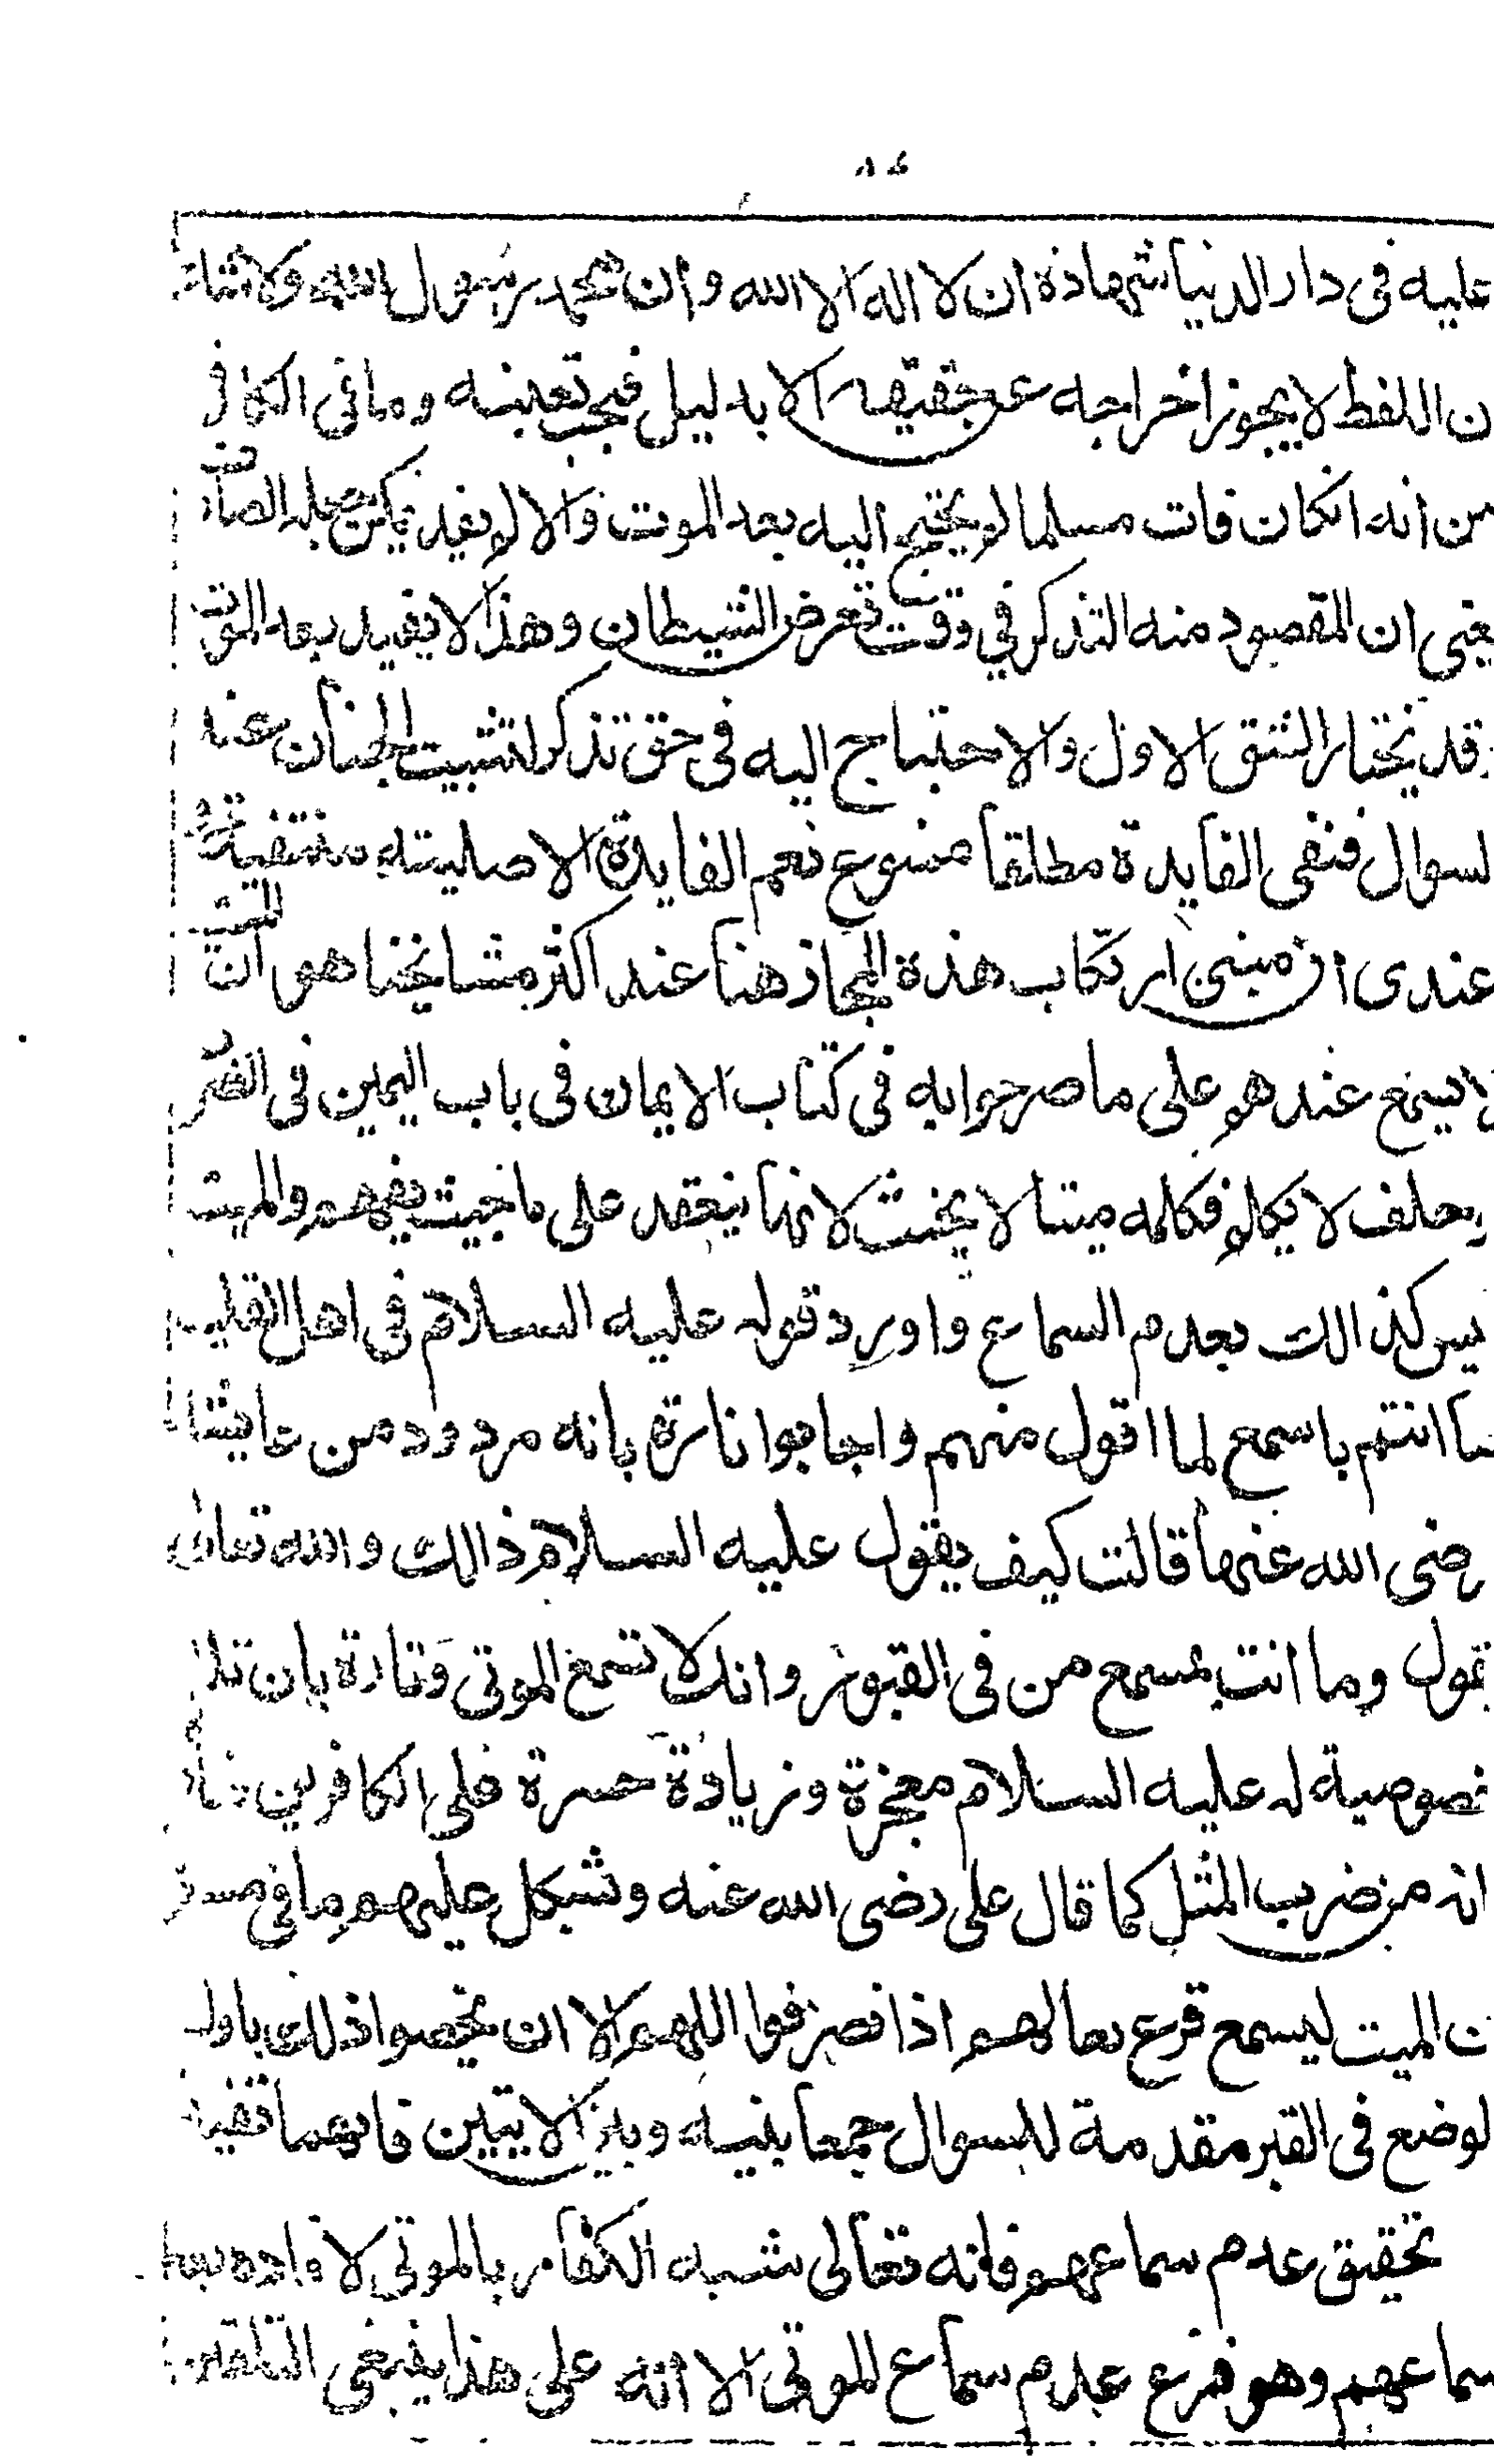 ٨٤
عليه فى دار الدنيا شهادة ان لا اله الا الله وان محمد رسول الله ولا شك
ن اللفظ لا يجوز اخراجه عن حقيقه الا بدليل فيجب تعينه وما فى الكافى
من انه انكان مات مسلما لم يحتج اليه بعد الموت والا لم يفد يمكن جعله الصارف
يعنى ان المقصود منه التذكر في وقت تعرض الشيطان وهذا لا يفيد بعد الموت
قد نختار الشق الاول والاحتياج اليه فى حق تذكر لتثبيت الجنان عند
لسوال فنفى الفايدة مطلقا ممنوع نعم الفايدة الاصلية منتفية
عندى ان مبنى ارتكاب هذة المجاز هنا عند اكثر مشايخنا هو ان الميت
لا يسمع عندهم على ما صرحوا به فى كتاب الايمان فى باب اليمين فى الضرب
حلف لا يكلم فكلمه ميتا لا يحنث لانها ينعقد على ما حيث يفهم والميت
ليس كذالك بعدم السماع واورد قوله عليه السلام فى اهل القليب
ما انتم باسمع لما اقول منهم واجابوا تارة بانه مردود من عايشة
رضى الله عنها قالت كيف يقول عليه السلام ذالك والله تعالى
يقول وما انت بمسمع من فى القبور وانك لا تسمع الموتى وتارة بان تلك
خصوصية له عليه السلام معجزة وزيادة حسرة على الكافرين
انه من ضرب المثل كما قال على رضى الله عنه وشبكل عليهم ما فى مسلم
ن الميت ليسمع قرع نعالهم اذا نصرفوا اللهم الا ان يخصوا ذلك باول
لوضع فى القبر مقدمة للسوال جمعا بينه وبين الايتين فانهما تفيد
تحقيق عدم سماعهم فانه تعالى شبه الكفار بالموتى لافادة بعد
سماعهم وهو فرع عدم سماع الموتى الا انه على هذا ينبغى التلقين